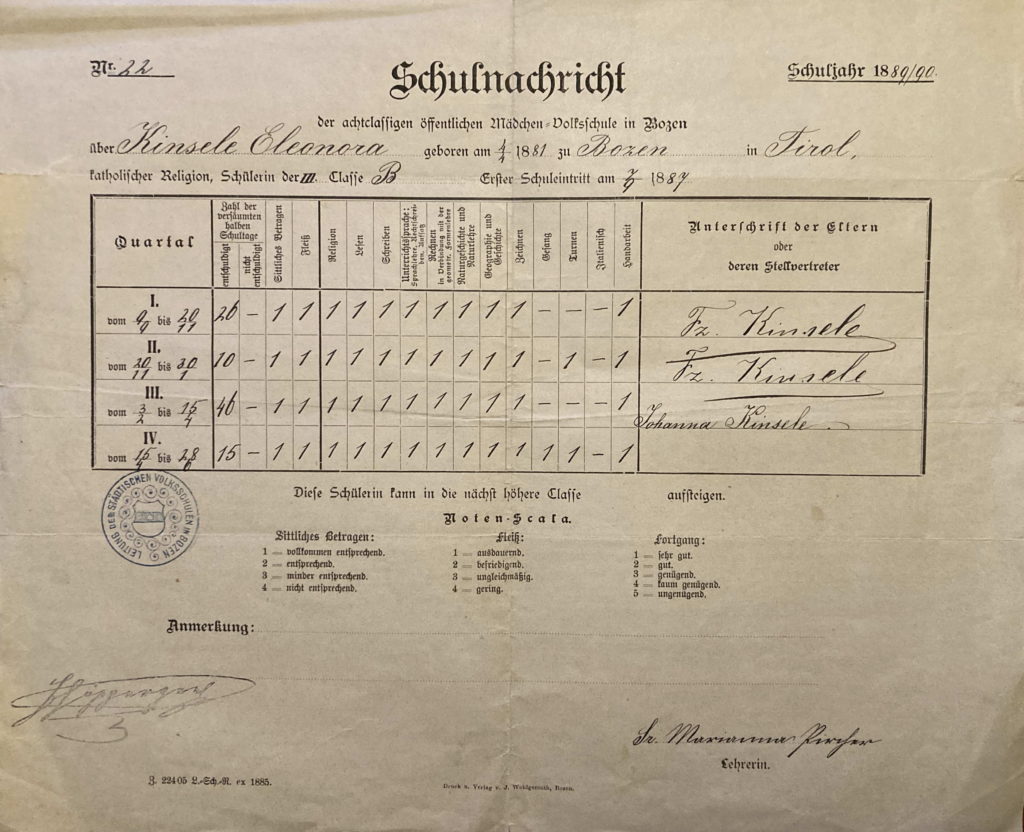 Nr. 22
Schulnachricht
Schuljahr 1889/90.
der achtclassigen öffentlichen Mädchen-Volksschule in Bozen
über Kinsele Eleonora geboren am 1881 zu Bozen in Tirol,
katholischer Religion, Schülerin der III. Classe B Erster Schuleintritt am 1887
Quartal
Zahl der versäumten halben Schultage
entschuldigt
nicht entschuldigt
Sittliches Betragen
Fleiß
Religion
Lesen
Schreiben
Unterrichtssprache: Sprachlehre, Rechtschreiben, Aufsatz
Rechnen in Verbindung mit der geometr. Formenlehre
Naturgeschichte und Naturlehre
Geographie und Geschichte
Zeichnen
Gesang
Turnen
Italienisch
Handarbeit
Unterschrift der Eltern
oder
deren Stellvertreter
I.
vom 9/9 bis 20/11 26 — 1 1 1 1 1 1 1 1 1 1 — — — 1 Fz. Kinsele
II.
vom 20/11 bis 30/1 10 — 1 1 1 1 1 1 1 1 1 1 — 1 — 1 Fz. Kinsele
III.
vom 3/2 bis 15/4 46 — 1 1 1 1 1 1 1 1 1 1 — — — 1 Johanna Kinsele.
IV.
vom 15/4 bis 28/6 15 — 1 1 1 1 1 1 1 1 1 1 1 1 — 1
LEITUNG DER STÄDTISCHEN VOLKSSCHULEN IN BOZEN
Diese Schülerin kann in die nächst höhere Classe aufsteigen.
Noten-Scala.
Sittliches Betragen:
1 = vollkommen entsprechend.
2 = entsprechend.
3 = minder entsprechend.
4 = nicht entsprechend.
Fleiß:
1 = ausdauernd.
2 = befriedigend.
3 = ungleichmäßig.
4 = gering.
Fortgang:
1 = sehr gut.
2 = gut.
3 = genügend.
4 = kaum genügend.
5 = ungenügend.
Anmerkung:
Sr. Marianna Pircher
Lehrerin.
Z. 22405 L.-Sch.-R. ex 1885.
Druck u. Verlag v. J. Wohlgemuth, Bozen.